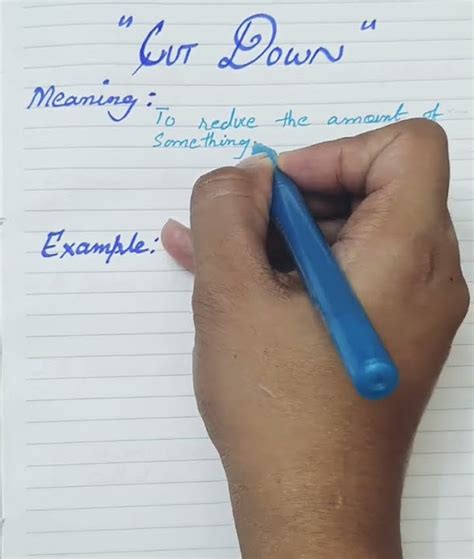 "Cut Down"
Meaning:
To reduce the amount of
Something.
Example: